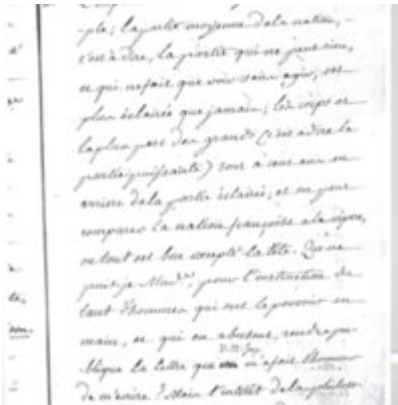 -ple; la partie moyenne de la nation, -
c'est à dire, la partie qui ne peut rien,
et qui ne fait que voir sans agir, est
plus éclairée que jamais; les corps et
la plus part des grands (c'est a dire la
partie puissante) sont à cent ans en
arriere de la partie éclairée; et on peut
comparer la nation françoise a la vipere,
ou tout est bon excepté la tête. Que ne
puis-je Mad.e, pour l'instruction de
tant d'hommes qui ont le pouvoir en
main, et qui en abusent, rendre pu-
blique la lettre que m'a fait l'honneur
de m'écrire? Mais l'intérêt de la philoso-